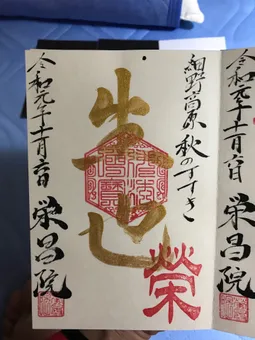 令和元年十一月六日
栄昌院
細野高原秋のすすき
榮
令和元年十一月六日
栄昌院